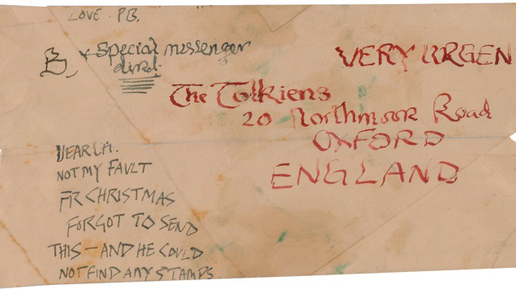 LOVE. P.B.
By special messenger
direct
VERY URGEN
The Tolkiens
20 Northmoor Road
OXFORD
ENGLAND
DEAR
NOT MY FAULT
FR CHRISTMAS
FORGOT TO SEND
THIS — AND HE COULD
NOT FIND ANY STAMPS